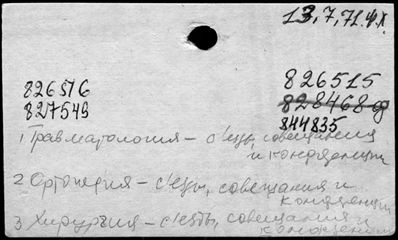 13,7,71.ф.х.
826515
826516
828468
827549
844835
1 Травматология – с'езды, совещания
и конференции
2 Ортопедия – с'езды, совещания и
конференции
3 Хирургия – с'езды, совещания и
конференции